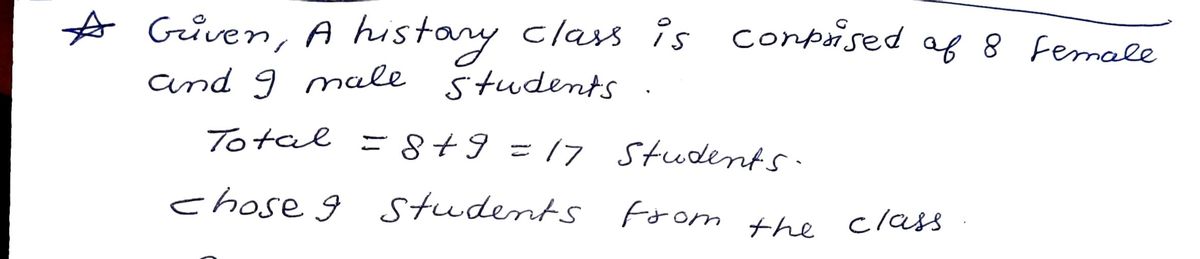 ☆ Given, A history class is comprised of 8 female
and 9 male students.
Total = 8+9 = 17 students.
chose 9 students from the class.